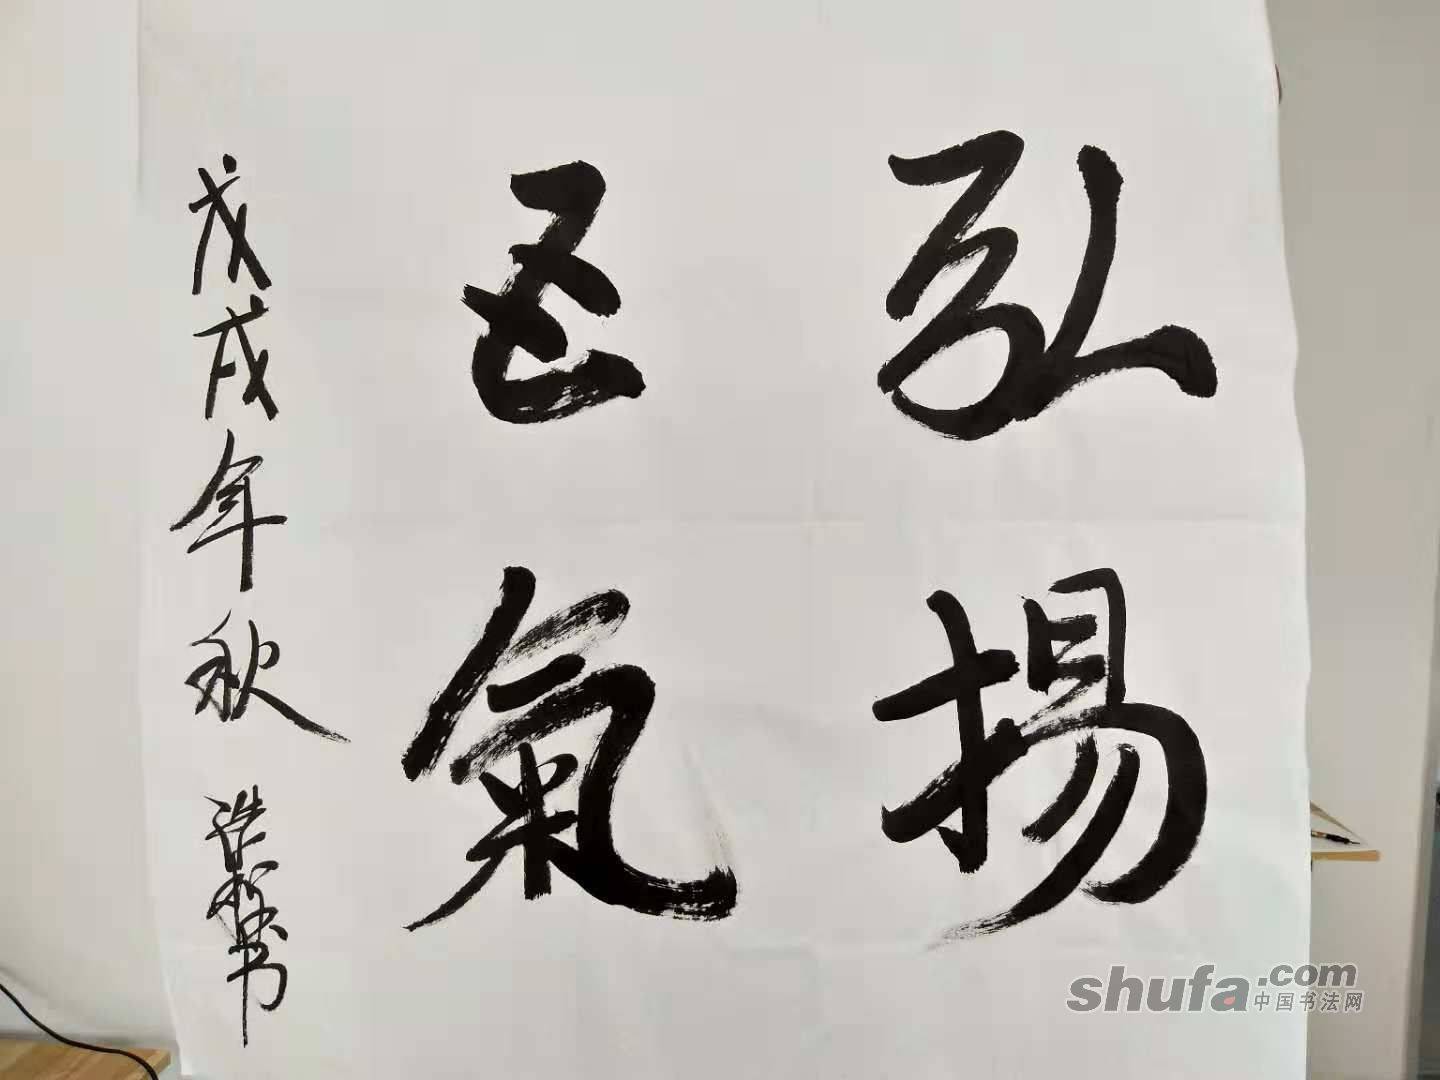 弘揚
正氣
戊戌年秋
书
shufa.com
中国书法网